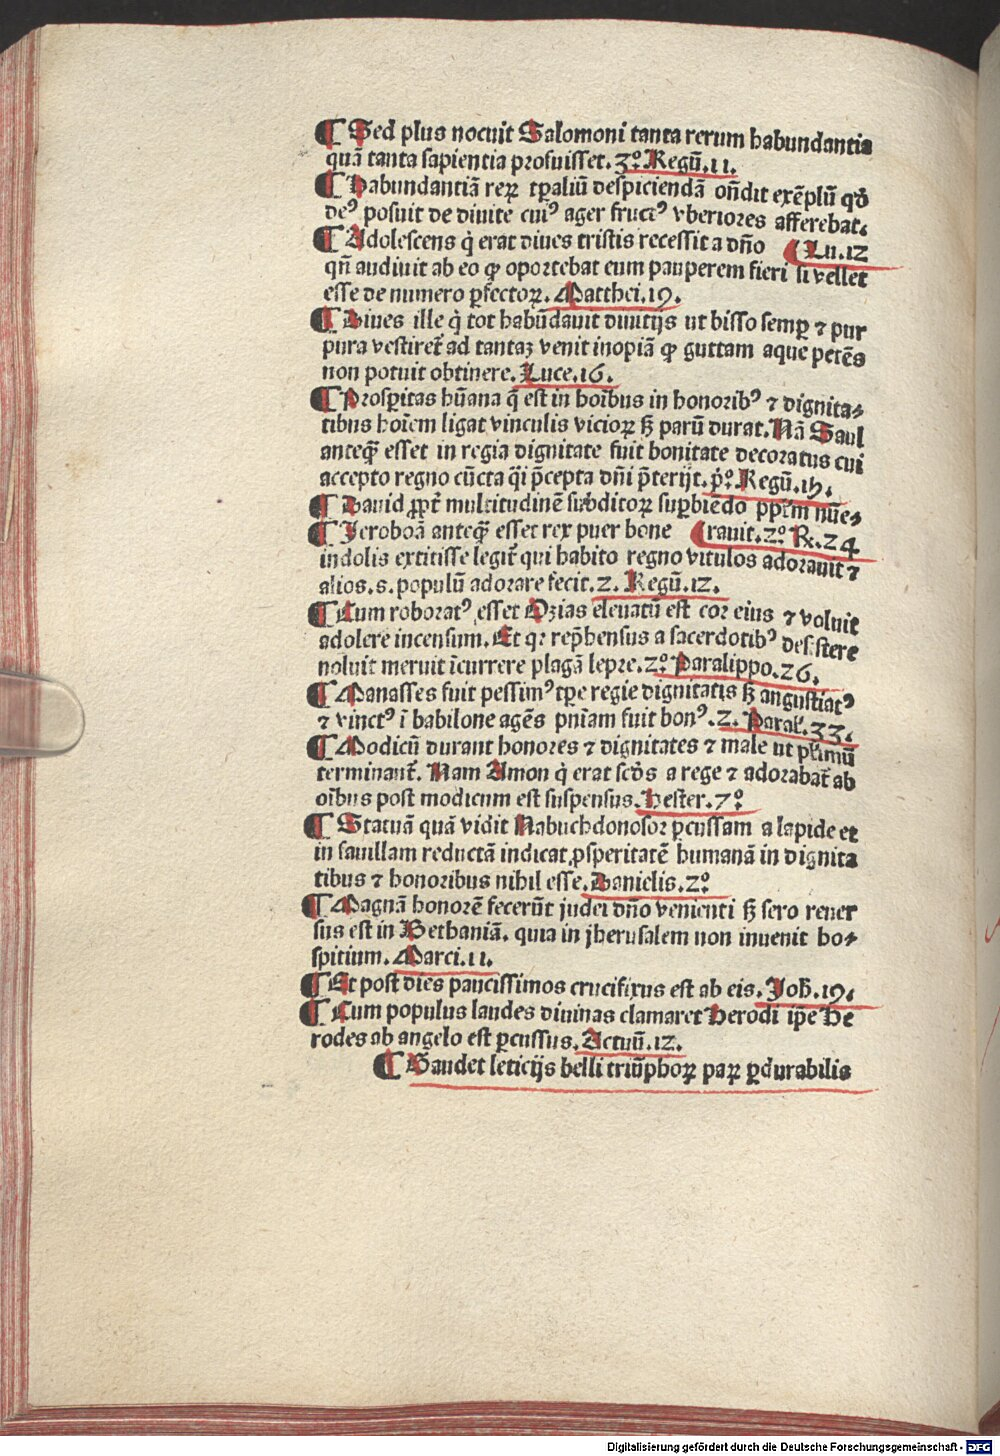 ¶ Sed plus nocuit Salomoni tanta rerum habundantia
quā tanta sapientia profuisset. 3º. Regū. 11.
¶ Habundantiā reꝝ tꝑaliū despiciendā oñdit exēplū qđ
deꝰ posuit de diuite cuiꝰ ager fructꝰ vberiores afferebat.
¶ Adolescens q̇ erat diues tristis recessit a dño (Lu. 12
qñ audiuit ab eo ꝙ oportebat eum pauperem fieri si vellet
esse de numero ꝑfectoꝝ. Matthei. 19.
¶ Diues ille q̇ tot habūdauit diuitijs ut bisso semꝑ ⁊ pur
pura vestiret̄ ad tantaꝫ venit inopiā ꝙ guttam aque petēs
non potuit obtinere. Luce. 16.
¶ Prosꝑitas hūana q̄ est in hoībus in honoribꝰ ⁊ dignita⸗
tibus hoīem ligat vinculis vicioꝝ sꝫ parū durat. Nā Saul
anteꝗ̄ esset in regia dignitate fuit bonitate decoratus cui
accepto regno cūcta q̈i p̄cepta dñi p̄terijt. pº. Regū. 15.
¶ Dauid ꝓpt̄ multitudinē subditoꝝ suꝑbiēdo ppl̄m nūe⸗
¶ Jeroboā anteꝗ̄ esset rex puer bone (rauit. 2º. R̄. 24
indolis extitisse legit̄ qui habito regno vitulos adorauit ⁊
alios .s. populū adorare fecit. 2. Regū. 12.
¶ Cum roboratꝰ esset Ozias eleuatū est cor eius ⁊ voluit
adolere incensum. Et qꝛ rep̄hensus a sacerdotibꝰ desistere
noluit meruit īcurrere plagā lepre. 2º. Paralippo. 26.
¶ Manasses fuit pessimꝰ tꝑe regie dignitatis sꝫ angustiatꝰ
⁊ vinctꝰ ī babilone agēs pñiam fuit bonꝰ. 2. Paral'. 33.
¶ Modicū durant honores ⁊ dignitates ⁊ male ut pl̄imū
terminant̄. Nam Amon q̇ erat scđs a rege ⁊ adorabat̄ ab
oībus post modicum est suspensus. Hester. 7º
¶ Statuā quā vidit Nabuchdonosor ꝑcussam a lapide et
in fauillam reductā indicat ꝓsperitatē humanā in dignita
tibus ⁊ honoribus nihil esse. Danielis. 2º
¶ Magnā honorē fecerūt judei dño venienti sꝫ sero reuer
sus est in Bethaniā. quia in jherusalem non inuenit ho⸗
spitium. Marci. 11.
¶ Et post dies paucissimos crucifixus est ab eis. Joh̄. 19.
¶ Cum populus laudes diuinas clamaret Herodi ip̄e He
rodes ab angelo est ꝑcussus. Actuū. 12.
¶ Gaudet leticijs belli triūphoꝝ paꝝ ꝑdurabilis
Digitalisierung gefördert durch die Deutsche Forschungsgemeinschaft - DFG